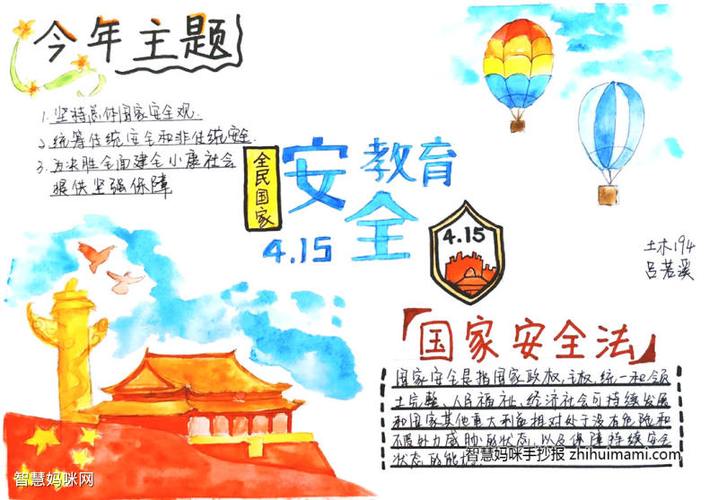 今年主题
1. 坚持总体国家安全观.
2. 统筹传统安全和非传统安全.
3. 为决胜全面建全小康社会
提供坚强保障
全民国家
安全
教育
4.15
4.15
土木194
吕若溪
「国家安全法」
国家安全是指国家政权、主权、统一和领
土完整、人民福祉、经济社会可持续发展
和国家其他重大利益相对处于没有危险和
不受外力威胁的状态,以及保障持续安全
状态的能力.
智慧妈咪手抄报 zhihuimami.com
智慧妈咪网